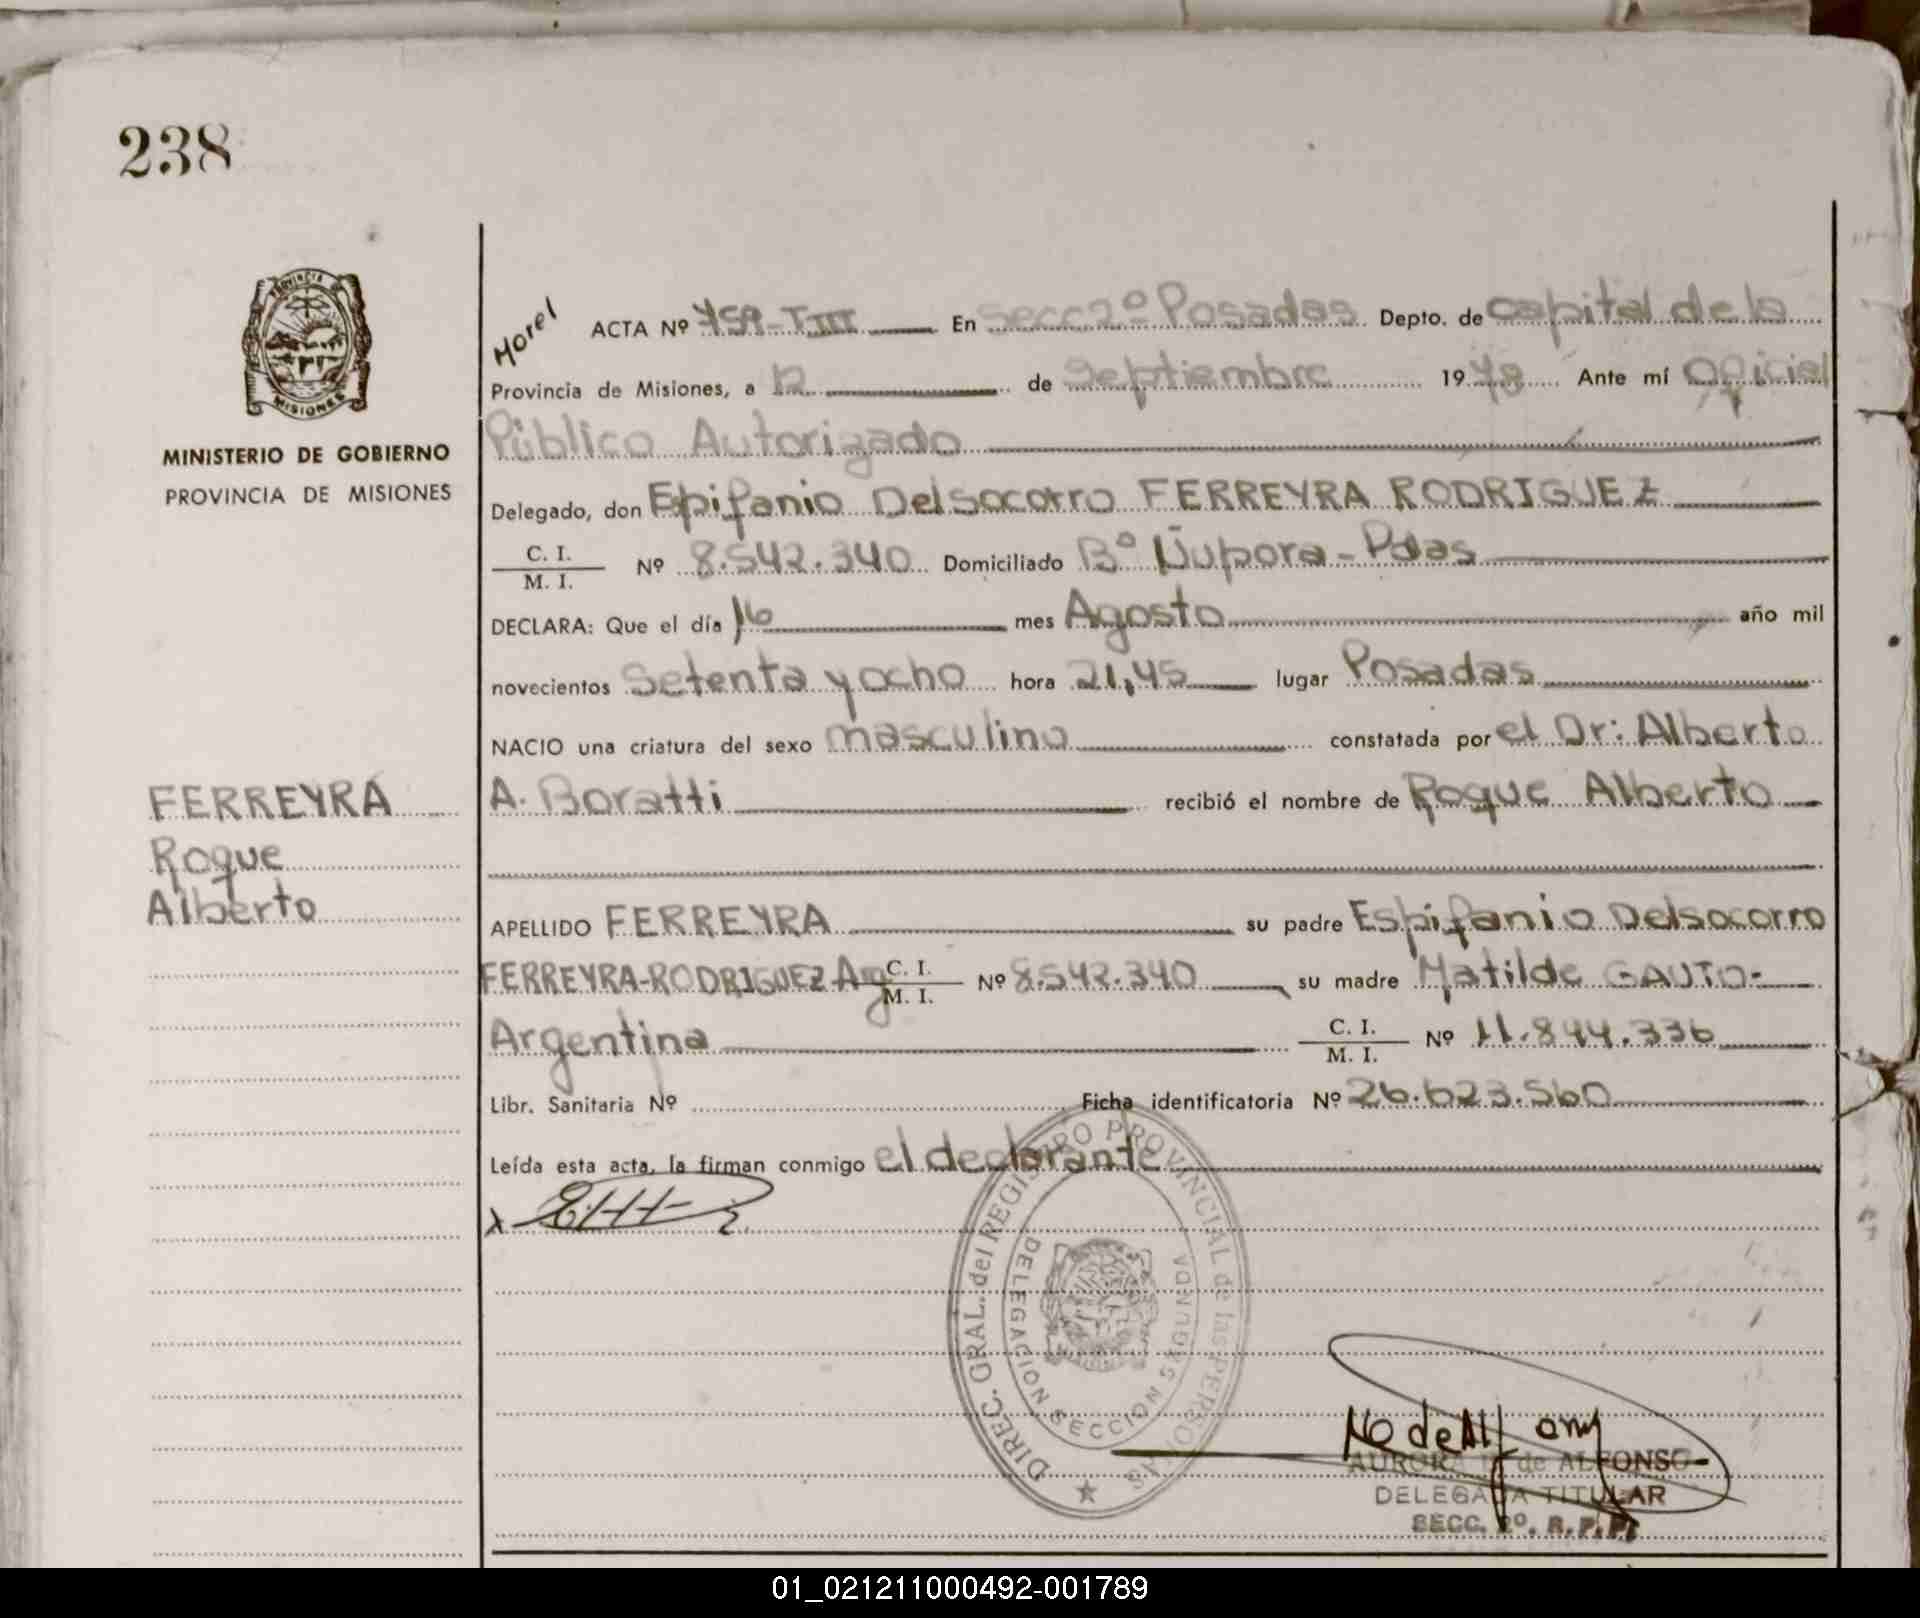 238
PROVINCIA
MISIONES
MINISTERIO DE GOBIERNO
PROVINCIA DE MISIONES
FERREYRA
Roque
Alberto
Morel
ACTA Nº 759-TIII En Secc 2º Posadas Depto. de Capital de la
Provincia de Misiones, a 12 de Septiembre 1978 Ante mí Oficial
Público Autorizado
Delegado, don Epifanio Delsocorro FERREYRA RODRIGUEZ
C. I.
M. I. Nº 8.542.340 Domiciliado Bº Ñupora - Pdas
DECLARA: Que el día 16 mes Agosto año mil
novecientos Setenta y ocho hora 21,45 lugar Posadas
NACIO una criatura del sexo masculino constatada por el Dr: Alberto
A. Boratti recibió el nombre de Roque Alberto
APELLIDO FERREYRA su padre Espifanio Delsocorro
FERREYRA-RODRIGUEZ Arg C. I. M. I. Nº 8.542.340 su madre Matilde GAUTO-
Argentina C. I. M. I. Nº 11.844.336
Libr. Sanitaria Nº Ficha identificatoria Nº 26.623.560
Leída esta acta, la firman conmigo el declarante
x
DIREC. GRAL. del REGISTRO PROVINCIAL de las PERSONAS
DELEGACION SECCION SEGUNDA
AURORA de ALFONSO
DELEGADA TITULAR
SECC. 2º. R.P.P.
01_021211000492-001789